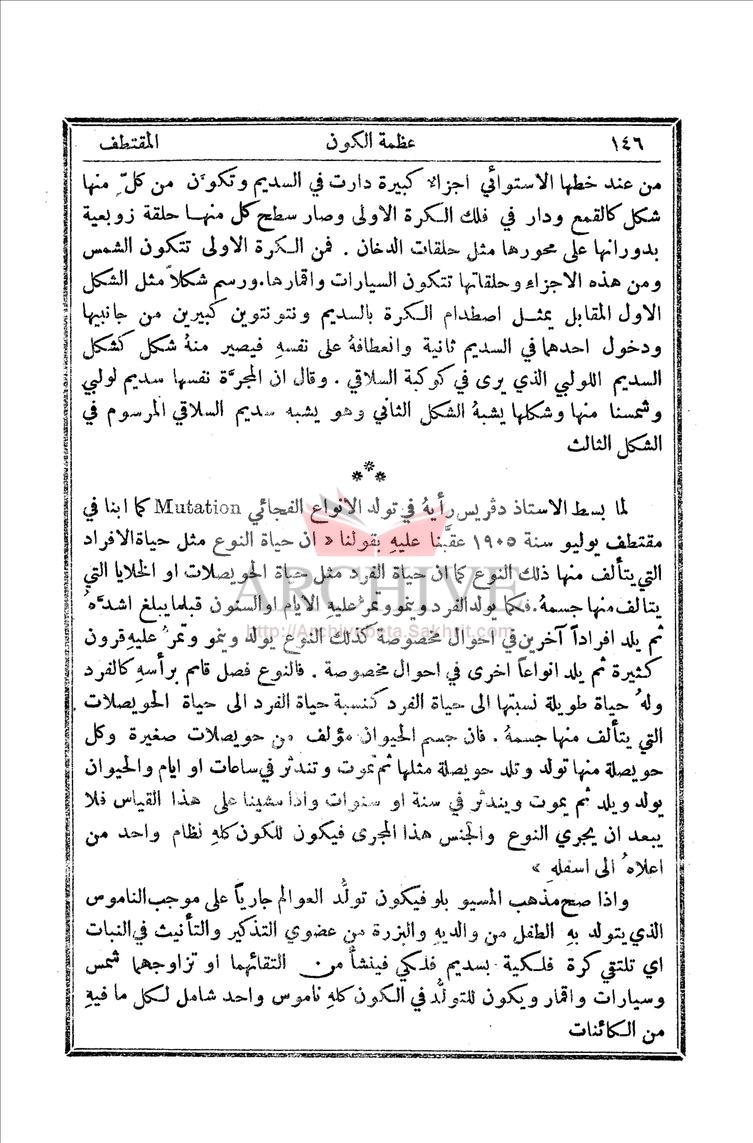 ١٤٦ عظمة الكون المقتطف
من عند خطها الاستوائي اجزاء كبيرة دارت في السديم وتكوّن من كلّ منها
شكل كالقمع ودار في فلك الكرة الاولى وصار سطح كل منها حلقة زوبعية
بدورانها على محورها مثل حلقات الدخان . فمن الكرة الاولى تتكون الشمس
ومن هذه الاجزاء وحلقاتها تتكون السيارات واقمارها. ورسم شكلاً مثل الشكل
الاول المقابل يمثل اصطدام الكرة بالسديم ونتو نتوين كبيرين من جانبيها
ودخول احدهما في السديم ثانية وانعطافهُ على نفسهِ فيصير منهُ شكل كشكل
السديم اللولبي الذي يرى في كوكبة السلاقي . وقال ان المجرَّة نفسها سديم لولبي
وشمسنا منها وشكلها يشبهُ الشكل الثاني وهو يشبه سديم السلاقي المرسوم في
الشكل الثالث
***
لما بسط الاستاذ دڤريس رأيهُ في تولد الانواع الفجائي Mutation كما ابنا في
مقتطف يوليو سنة ١٩٠٥ عقَّبنا عليهِ بقولنا « ان حياة النوع مثل حياة الافراد
التي يتألف منها ذلك النوع كما ان حياة الفرد مثل حياة الحويصلات او الخلايا التي
يتالف منها جسمهُ. فكما يولد الفرد وينمو وتمرُّ عليهِ الايام او السنون قبلما يبلغ اشدَّهُ
ثم يلد افراداً آخرين في احوال مخصوصة كذلك النوع يولد وينمو وتمرُّ عليهِ قرون
كثيرة ثم يلد انواعاً اخرى في احوال مخصوصة . فالنوع فصل قائم برأسهِ كالفرد
ولهُ حياة طويلة نسبتها الى حياة الفرد كنسبة حياة الفرد الى حياة الحويصلات
التي يتألف منها جسمهُ . فان جسم الحيوان مؤلف من حويصلات صغيرة وكل
حويصلة منها تولد وتلد حويصلة مثلها ثم تموت وتندثر في ساعات او ايام والحيوان
يولد ويلد ثم يموت ويندثر في سنة او سنوات واذا مشينا على هذا القياس فلا
يبعد ان يجري النوع والجنس هذا المجرى فيكون للكون كلهِ نظام واحد من
اعلاهُ الى اسفلهِ »
واذا صح مذهب المسيو بلو فيكون تولُّد العوالم جارياً على موجب الناموس
الذي يتولد بهِ الطفل من والديهِ والبزرة من عضوي التذكير والتأنيث في النبات
اي تلتقي كرة فلكية بسديم فلكي فينشأ من التقائهما او تزاوجهما شمس
وسيارات واقمار ويكون للتولُّد في الكون كلهِ ناموس واحد شامل لكل ما فيهِ
من الكائنات
ARCHIVE
http://Archivebeta.Sakhrit.com